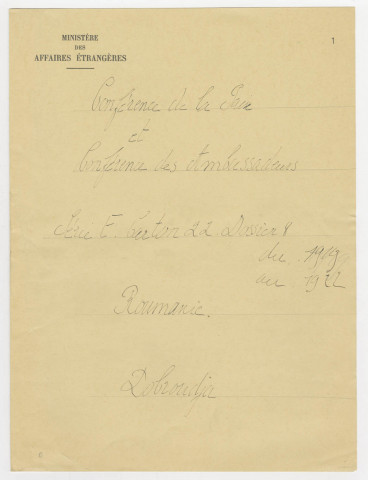 MINISTÈRE
DES
AFFAIRES ÉTRANGÈRES
1
Conférence de la Paix
et
Conférence des Ambassadeurs
Série E. Carton 22 Dossier 8
du 1919
au 1922
Roumanie.
Dobroudja